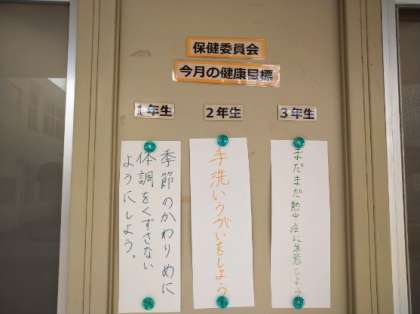 保健委員会
今月の健康目標
1年生
季節のかわりめに
体調をくずさない
ようにしよう。
2年生
手洗いうがいをしよう
3年生
まだまだ熱中症に注意しよう